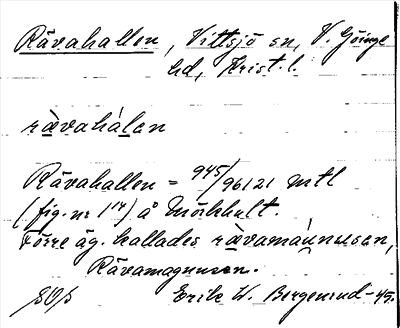 Rävahallen, Vittsjö sn, V. Göinge
hd, Krist. l.
rävahálan
Rävahallen = 945/96121 mtl
(fig. nr 1¹⁴) å Mörkhult.
Förre äg. kallades rävamánnusen,
Rävamagnusen.
Erik W. Bergenrud -45.